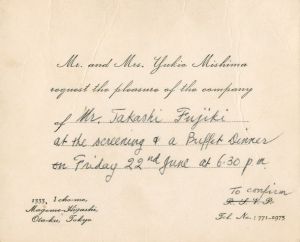 Mr. and Mrs. Yukio Mishima
request the pleasure of the company
of Mr. Takashi Fujiki
at the screening & a Buffet Dinner
on Friday 22nd June at 6:30 pm
To confirm
R. S. V. P.
1333, 1 chome,
Magome-Higashi,
Ota-ku, Tokyo
Tel. No.: 771-2975